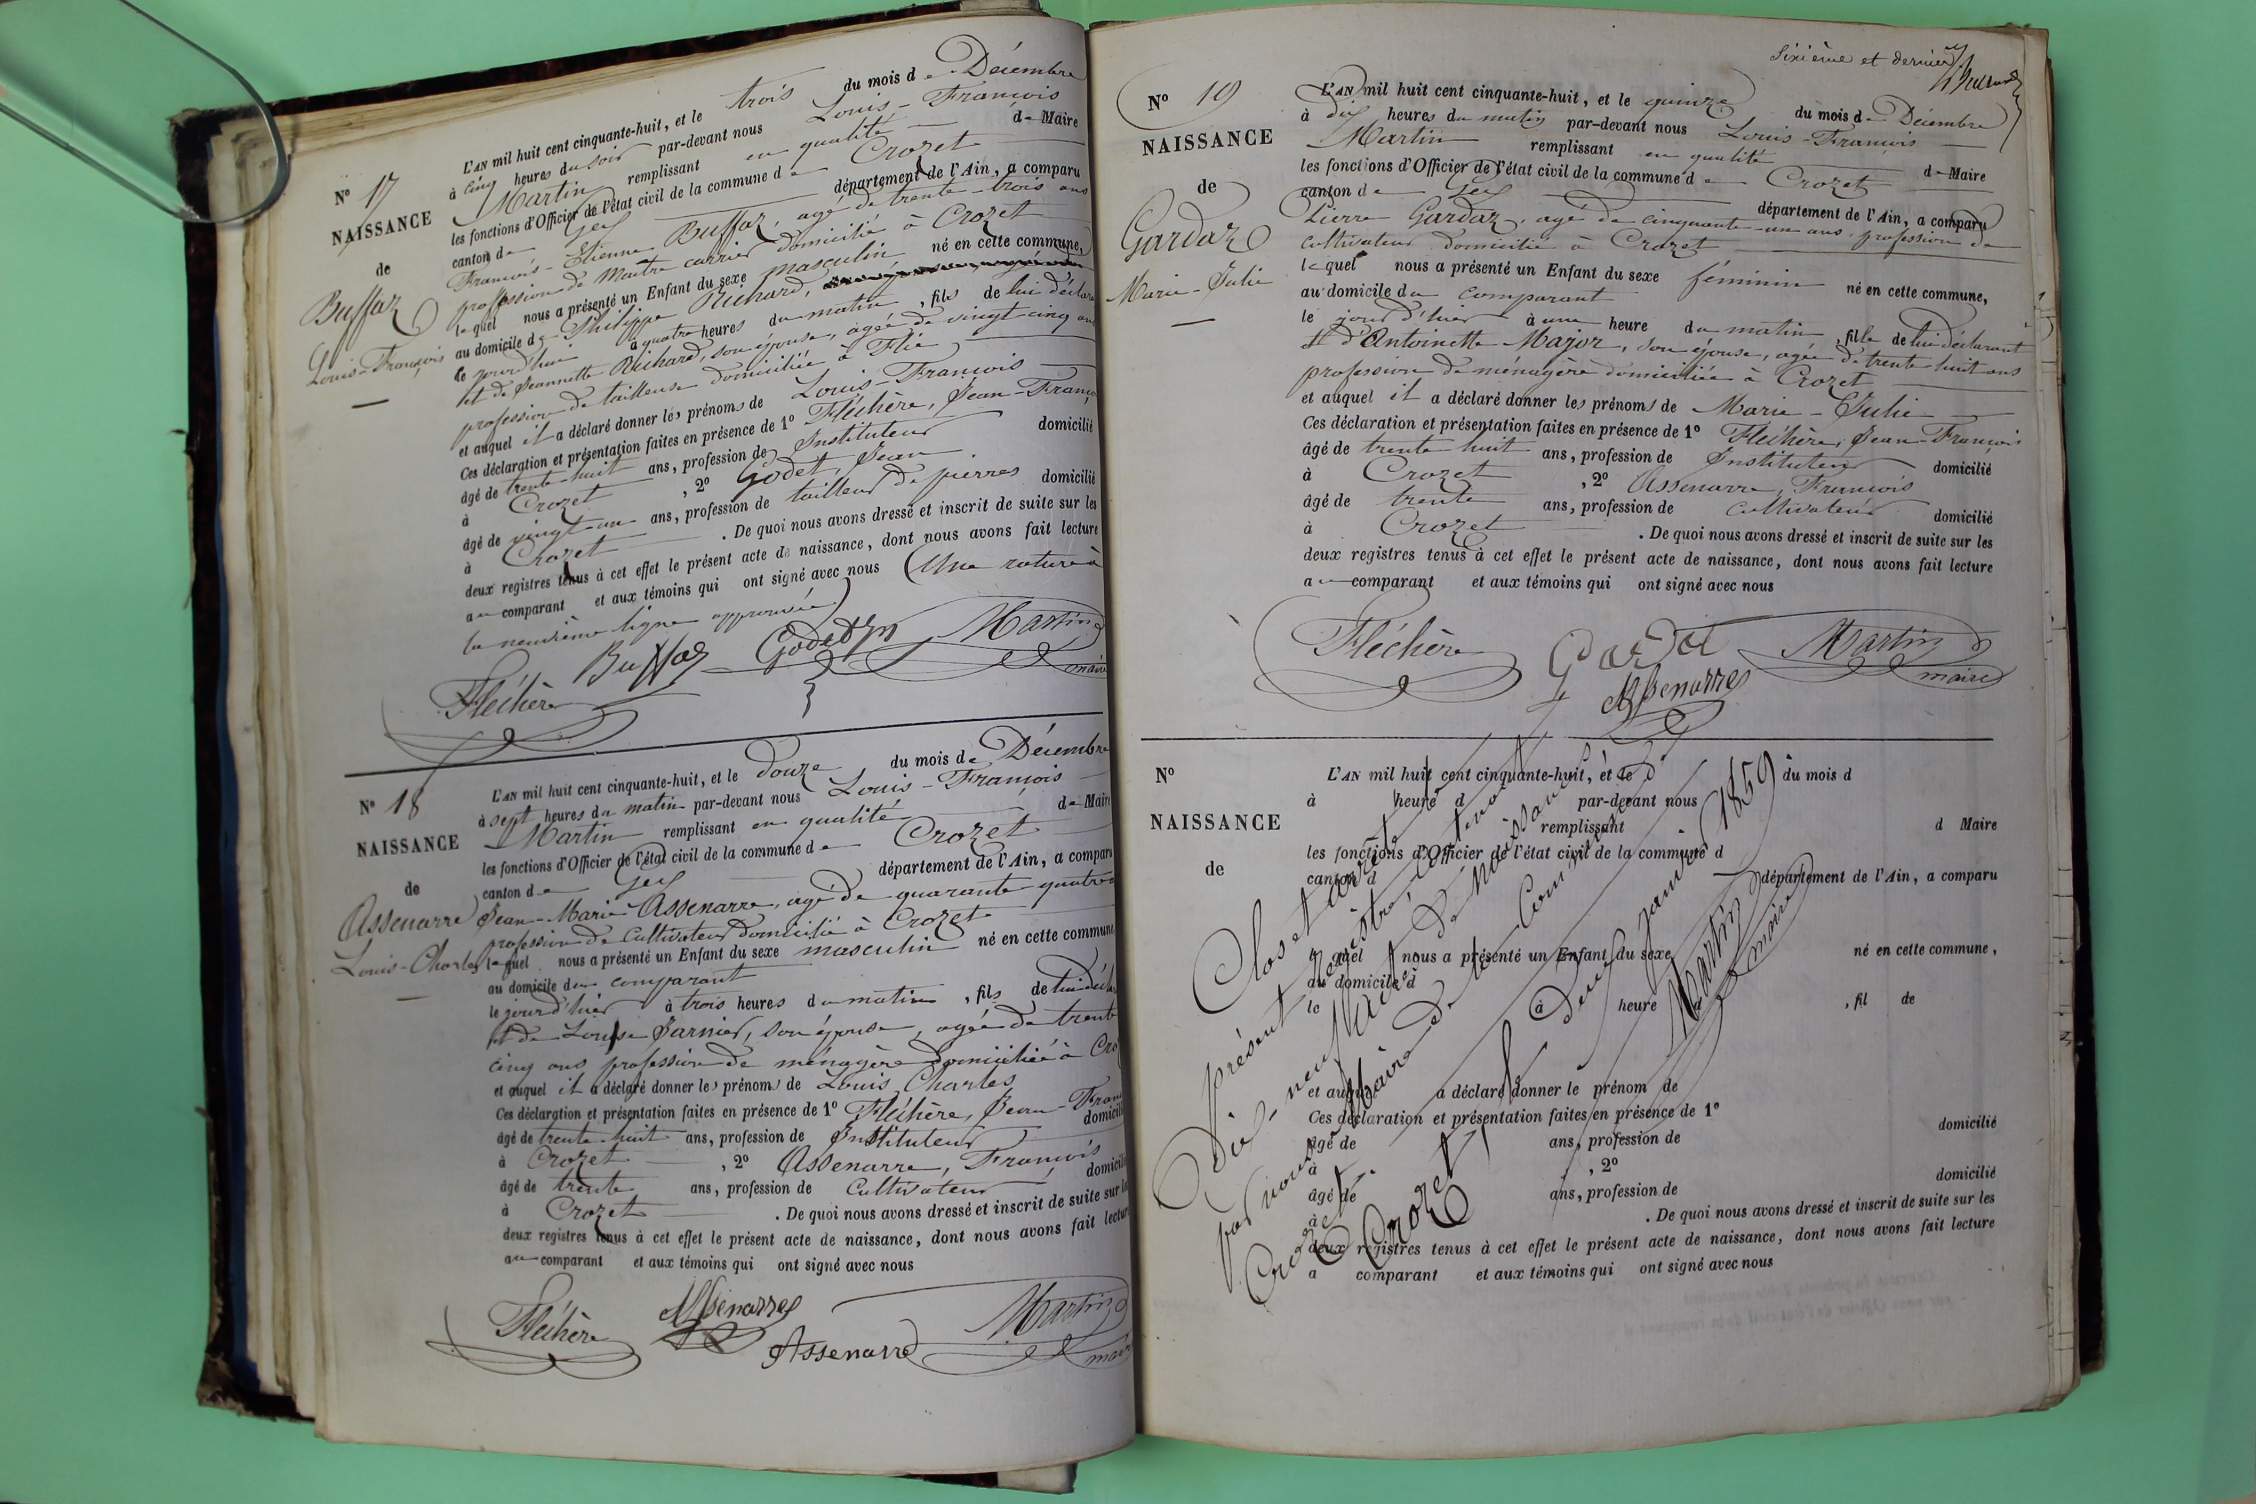 N° 17
NAISSANCE
de
Buffaz
Louis-François
L'AN mil huit cent cinquante-huit, et le trois du mois de Décembre
à cinq heures du soir par-devant nous Louis-François
Martin remplissant en qualité de Maire
les fonctions d'Officier de l'état civil de la commune de Crozet
canton de Gex département de l'Ain, a comparu
François-Etienne Buffaz, agé de trente-trois ans
profession de Maître carrier domicilié à Crozet
lequel nous a présenté un Enfant du sexe masculin né en cette commune,
au domicile de Philippe Richard,
le jourd'hui à quatre heures du matin, fils de lui déclarant
et de Jeannette Richard, son épouse, agée de vingt cinq ans
profession de tailleuse domiciliée à Flie
et auquel il a déclaré donner les prénoms de Louis-François
Ces déclaration et présentation faites en présence de 1° Fléchère, Jean-François
âgé de trente-huit ans, profession de Instituteur domicilié
à Crozet, 2° Godet, Jean
âgé de vingt-un ans, profession de tailleur de pierres domicilié
à Crozet. De quoi nous avons dressé et inscrit de suite sur les
deux registres tenus à cet effet le présent acte de naissance, dont nous avons fait lecture
au comparant et aux témoins qui ont signé avec nous (Une rature à
la neuvième ligne approuvée)
Fléchère Buffaz Godet Jn Martin
maire
N° 18
NAISSANCE
de
Assenarre
Louis-Charles
L'AN mil huit cent cinquante-huit, et le douze du mois de Décembre
à sept heures du matin par-devant nous Louis-François
Martin remplissant en qualité de Maire
les fonctions d'Officier de l'état civil de la commune de Crozet
canton de Gex département de l'Ain, a comparu
Jean-Marie Assenarre, agé de quarante quatre
profession de Cultivateur domicilié à Crozet
lequel nous a présenté un Enfant du sexe masculin né en cette commune
au domicile du comparant
le jour d'hier à trois heures du matin, fils de lui décla
et de Louise Jarnier, son épouse, agée de trente
cinq ans profession de ménagère domiciliée à Cro
et auquel il a déclaré donner les prénoms de Louis Charles
Ces déclaration et présentation faites en présence de 1° Fléchère, Jean-Fran
âgé de trente-huit ans, profession de Instituteur domicilié
à Crozet, 2° Assenarre, François
âgé de trente ans, profession de Cultivateur domicilié
à Crozet. De quoi nous avons dressé et inscrit de suite sur les
deux registres tenus à cet effet le présent acte de naissance, dont nous avons fait lecture
au comparant et aux témoins qui ont signé avec nous
Fléchère Assenarre Martin
Assenarre maire
Sixième et dernier
N° 19
NAISSANCE
de
Gardaz
Marie-Julie
L'AN mil huit cent cinquante-huit, et le quinze du mois de Décembre
à dix heures du matin par-devant nous Louis-François
Martin remplissant en qualité de Maire
les fonctions d'Officier de l'état civil de la commune de Crozet
canton de Gex département de l'Ain, a comparu
Pierre Gardaz, agé de cinquante-un ans, profession de
cultivateur domicilié à Crozet
lequel nous a présenté un Enfant du sexe féminin né en cette commune,
au domicile du comparant
le jour d'hier à une heure du matin, fille de lui déclarant
et d'Antoinette Major, son épouse, agée de trente huit ans
profession de ménagère domiciliée à Crozet
et auquel il a déclaré donner les prénoms de Marie-Julie
Ces déclaration et présentation faites en présence de 1° Fléchère, Jean-François
âgé de trente huit ans, profession de Instituteur domicilié
à Crozet, 2° Assenarre, François
âgé de trente ans, profession de Cultivateur domicilié
à Crozet. De quoi nous avons dressé et inscrit de suite sur les
deux registres tenus à cet effet le présent acte de naissance, dont nous avons fait lecture
au comparant et aux témoins qui ont signé avec nous
Fléchère Martin
Assenarre maire
N°
NAISSANCE
de
L'AN mil huit cent cinquante-huit, et le du mois d
à heure d par-devant nous
remplissant d Maire
les fonctions d'Officier de l'état civil de la commune d
canton d département de l'Ain, a comparu
quel nous a présenté un Enfant du sexe né en cette commune,
au domicile d
le à heure d, fil de
et auquel a déclaré donner le prénom de
Ces déclaration et présentation faites en présence de 1°
âgé de ans, profession de domicilié
à, 2°
âgé de ans, profession de domicilié
à. De quoi nous avons dressé et inscrit de suite sur les
deux registres tenus à cet effet le présent acte de naissance, dont nous avons fait lecture
a comparant et aux témoins qui ont signé avec nous
Clos et arrêté le
présent Registre, contenant
Dix-neuf Actes de Naissances
par nous Maire de la Commune de
Crozet.
Crozet, le deux Janvier 1859
Martin
maire